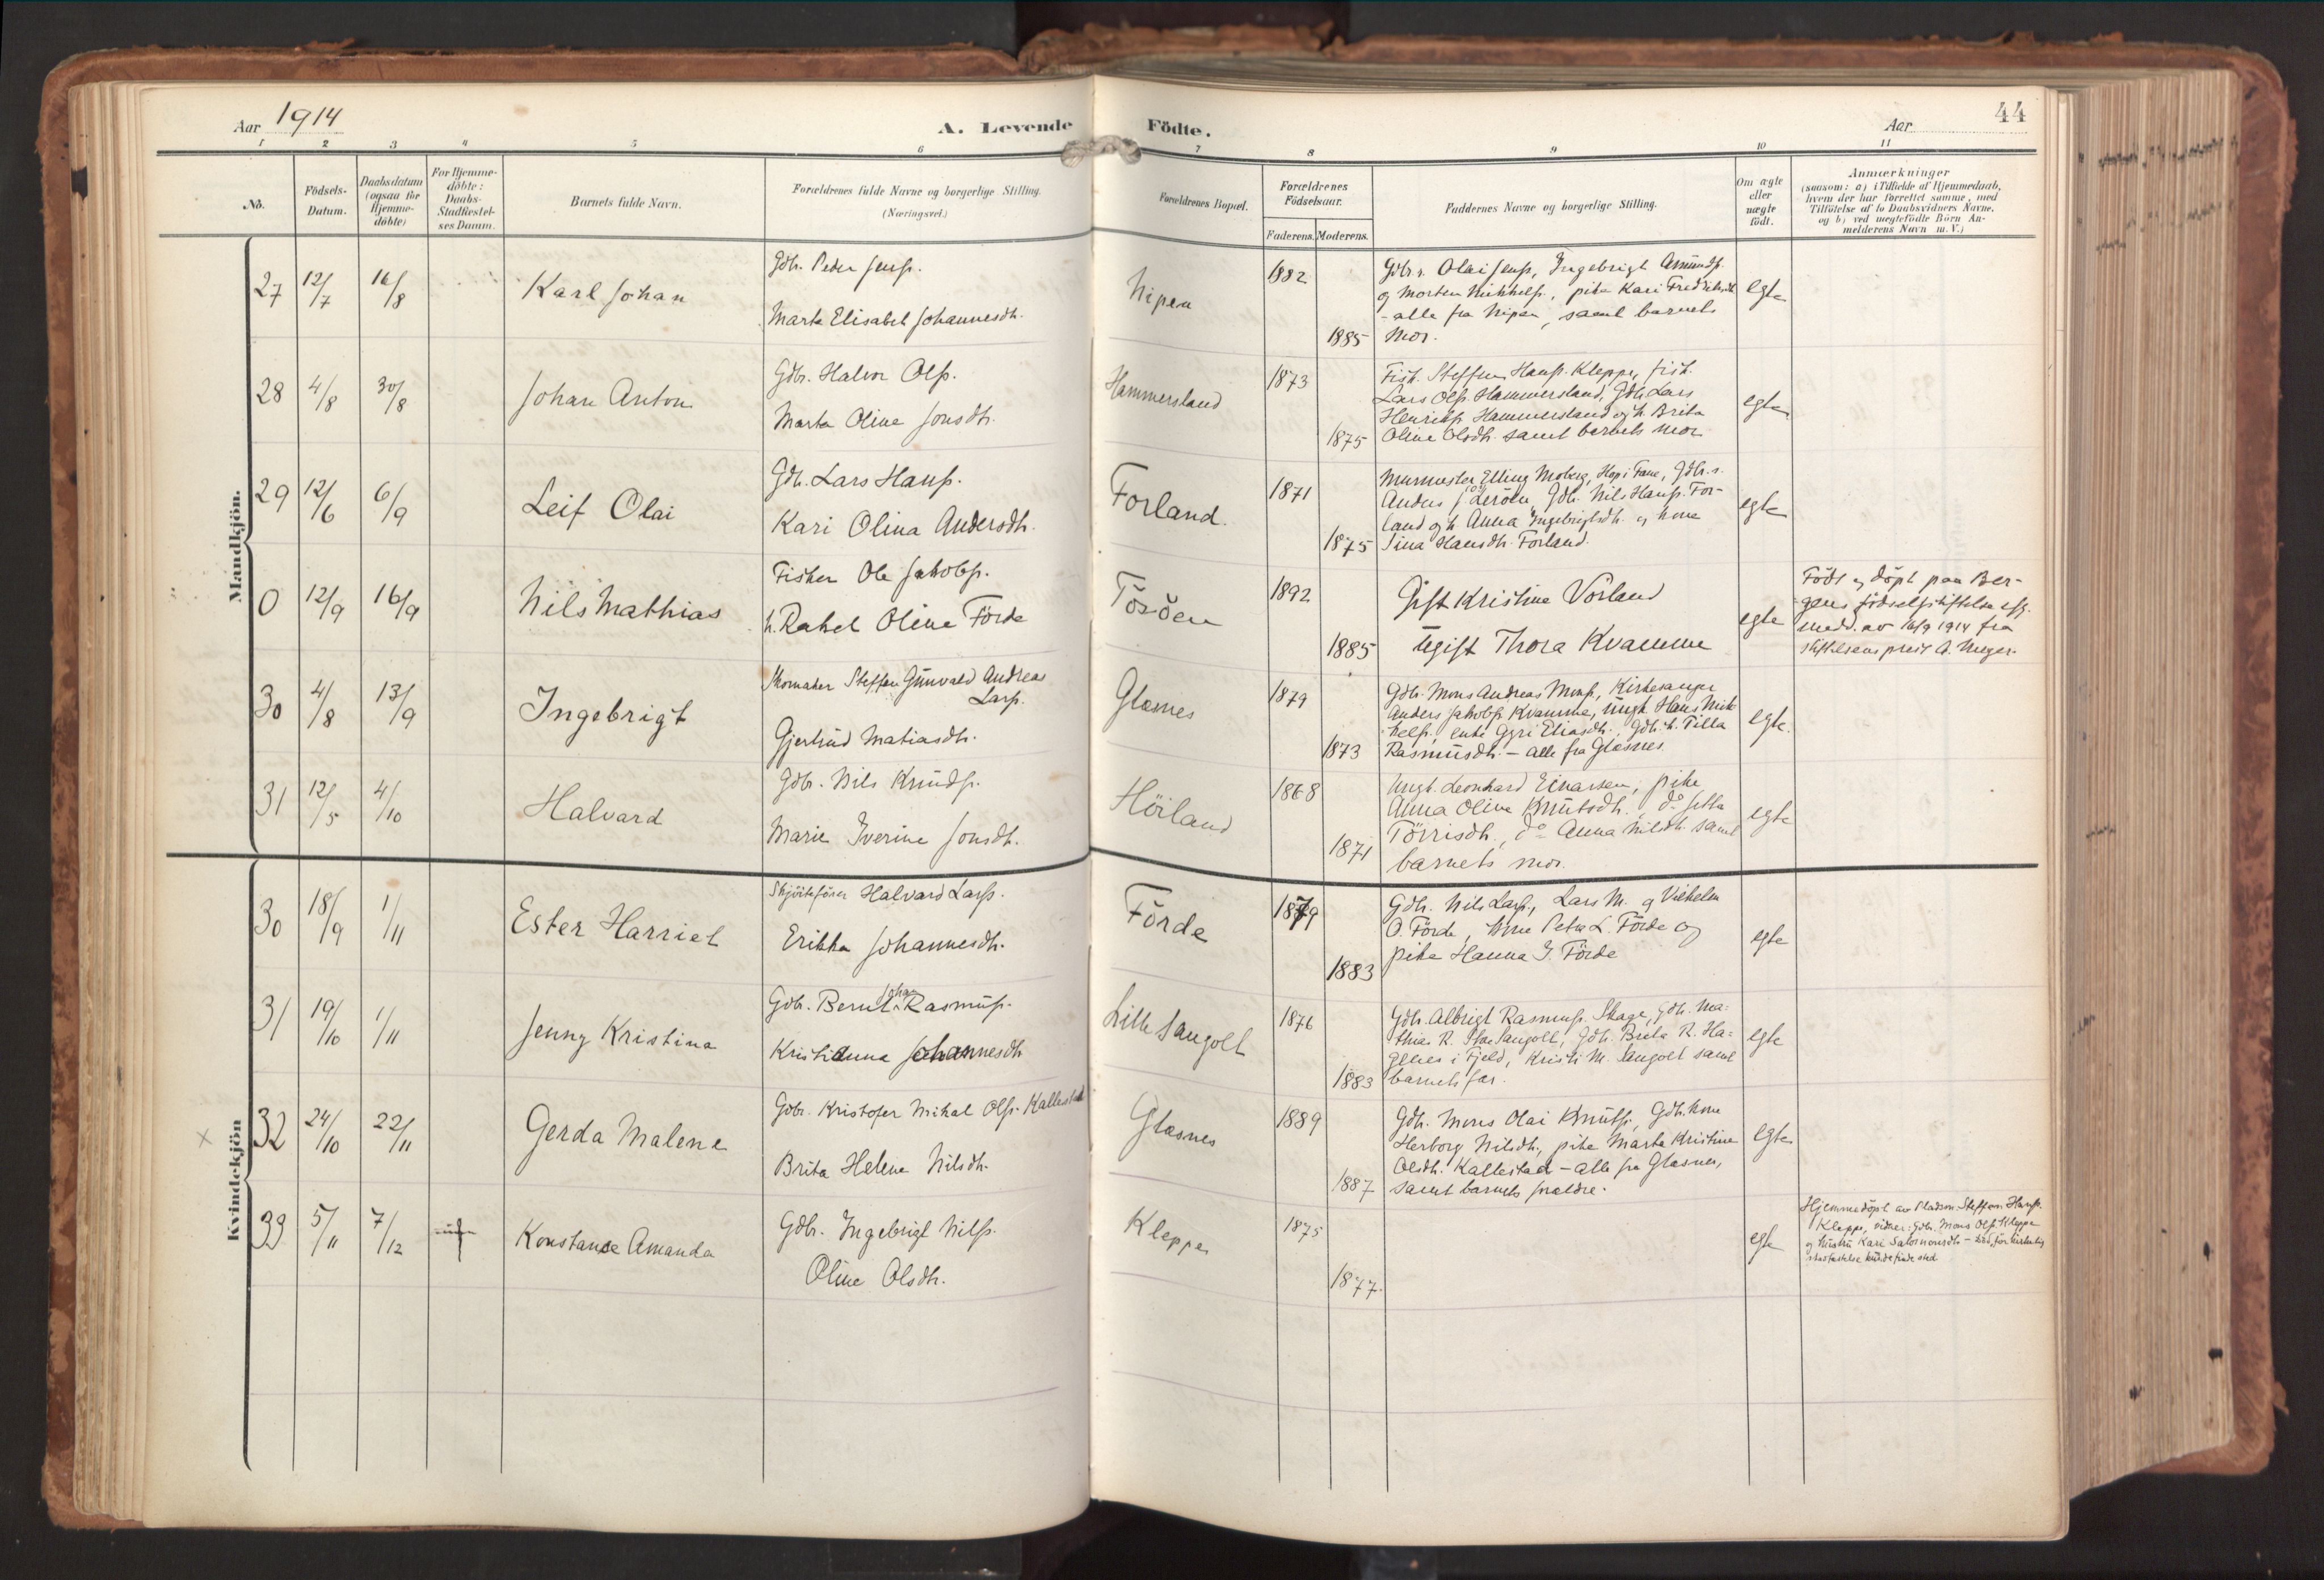 Aar 1914
A. Levende
Födte.
Aar
44
1 2 3 4 5 6 7 8 9 10 11
No.
Födsels-
Datum.
Daabsdatum
(ogsaa for
Hjemme-
döbte)
For Hjemme-
döbte:
Daabs-
Stadfæstel-
ses Datum.
Barnets fulde Navn.
Forældrenes fulde Navne og borgerlige Stilling.
(Næringsvei.)
Forældrenes Bopæl.
Forældrenes
Födselsaar.
Faderens. Moderens.
Faddernes Navne og borgerlige Stilling.
Om ægte
eller
uægte
födt.
Anmærkninger
(saasom: a) i Tilfælde af Hjemmedaab,
hvem der har forrettet samme, med
Tilföielse af to Daabsvidners Navne,
og b) ved uægtefödte Börn An-
melderens Navn m. V.)
Mandkjön.
27 12/7 16/8 Karl Johan
Gdbr. Peder Jenss.
Marta Elisabet Johannesdtr.
Nipen
1882
1885
Gdbrs. Olai Jenss., Ingebrigt Amunds.
og Morten Mikkels., pike Kari Fredriksdtr
- alle fra Nipen, samt barnets
mor.
egte
28 4/8 30/8 Johan Anton
Gdbr. Halvor Ols.
Marta Oline Jonsdtr.
Hammersland
1873
1875
Fisk. Steffen Hanss. Kleppe, fisk.
Lars Ols. Hammersland, Gdbr. Lars
Henriks. Hammersland og h. Brita
Oline Olsdtr. samt barnets mor
egte
29 12/6 6/9 Leif Olai
Gdbr. Lars Hanss.
Kari Olina Andersdtr.
Forland.
1871
1875
Murmester Elling Moberg, Hop i Fane, Gdbr. s.
Anders Leröen, Gdbr. Nils Hanss. For-
land og h. Anna Ingebrigtsdtr. og kone
Sina Hansdtr. Forland.
egte
0 12/9 16/9 Nils Mathias
Fisker Ole Jakobs.
h. Rakel Oline Förde
Tösöen
1892
1885
Gift Kristine Vorland
Ugift Thora Kvamme
egte
Födt og döpt paa Ber-
gens födselsstiftelse efg.
medd. av 16/9 1914 fra
stiftelsens prest A. Unger.
30 4/8 13/9 Ingebrigt
Skomaker Steffen Gunvald Andreas
Larss.
Gjertrud Matiasdtr.
Glesnes
1879
1873
Gdbr. Mons Andreas Monss., Kirkesanger
Anders Jakobs. Kvamme, ungk. Hans Mik-
kels., enke Gyri Eliasdtr., Gdbr. h. Tilla
Rasmusdtr. - alle fra Glesnes.
egte.
31 12/5 4/10 Halvard
Gdbr. Nils Knuds.
Marie Iverine Jonsdtr.
Höiland
1868
1871
Ungk. Leonhard Einarsen, pike
Anna Oline Knutsdtr., do Jetta
Törrisdtr., do Anna Nilsdtr. samt
barnets mor.
egte
Kvindekjön
30 18/9 1/11 Ester Harriet
Skjöiteförer Halvard Larss.
Erikka Johannesdtr.
Förde
1879
1883
Gdbr. Nils Larss., Lars M. og Vilhelm
O. Förde, kone Petra L. Förde og
pike Hanna J. Förde
egte
31 19/10 1/11 Jenny Kristina
Gdbr. Bernt Johan Rasmuss.
Kristianna Johannesdtr
Lille Sangolt
1876
1883
Gdbr. Albrigt Rasmuss. Skage, Gdbr. Ma-
thias R. Store Sangolt, Gdbr. Brita R. Ha-
genes i Fjeld, Kristi M. Sangolt samt
barnets far.
egte
x 32 24/10 22/11 Gerda Malene
Gdbr. Kristofer Mikal Ols. Kallestad
Brita Helene Nilsdtr.
Glesnes
1889
1887
Gdbr. Mons Olai Knuts., Gdbr. kone
Herborg Nilsdtr., pike Marta Kristine
Olsdtr. Kallestad - alle fra Glesnes,
samt barnets forældre.
egte
33 5/11 7/12 Konstanse Amanda
Gdbr. Ingebrigt Nilss.
Oline Olsdtr.
Kleppe
1875
1877.
egte
Hjemmedöpt av Steffen Hanss.
Kleppe, vidner: Gdbr. Mons Ols. Kleppe
og hustru Kari Salomonsdtr - död för kirkelig
stadfæstelse kunde finde sted